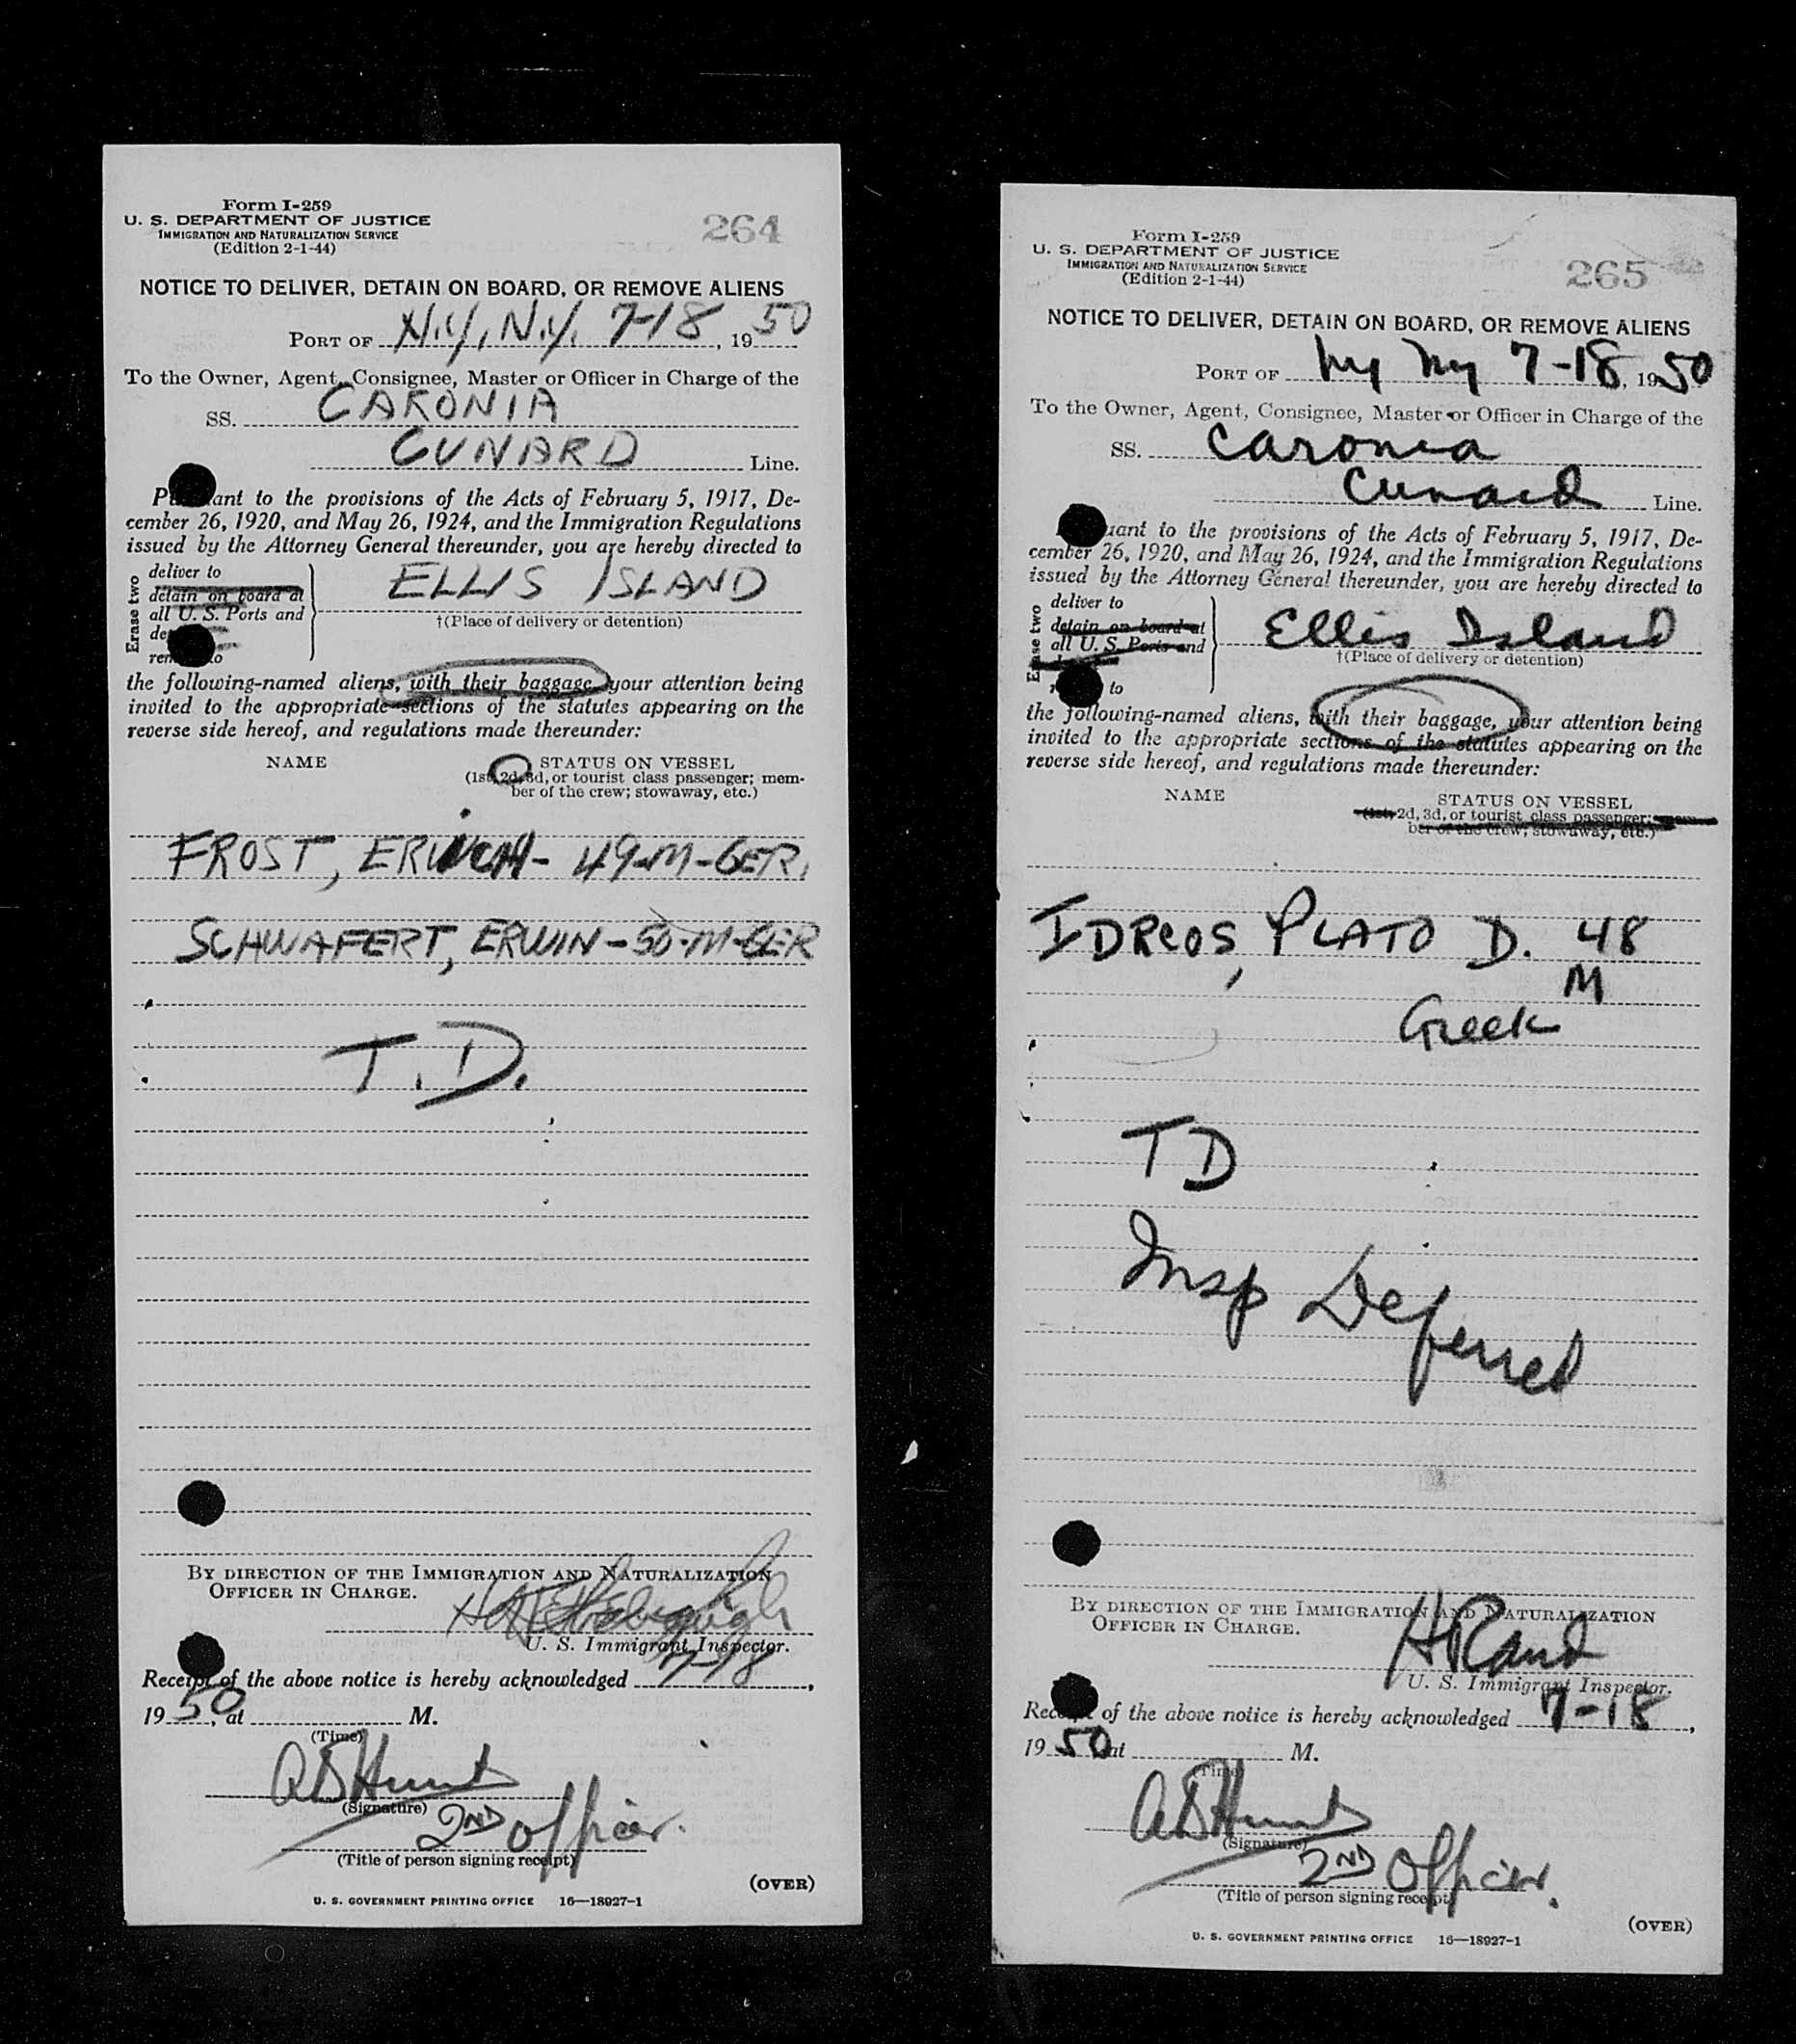 Form I-259
U. S. DEPARTMENT OF JUSTICE
IMMIGRATION AND NATURALIZATION SERVICE
(Edition 2-1-44)
264
NOTICE TO DELIVER, DETAIN ON BOARD, OR REMOVE ALIENS
PORT OF N.Y., N.Y. 7-18, 1950
To the Owner, Agent, Consignee, Master or Officer in Charge of the
SS. CARONIA
CUNARD Line.
ant to the provisions of the Acts of February 5, 1917, De-
cember 26, 1920, and May 26, 1924, and the Immigration Regulations
issued by the Attorney General thereunder, you are hereby directed to
Erase two
deliver to
detain on board at
all U. S. Ports and
to
ELLIS ISLAND
†(Place of delivery or detention)
the following-named aliens, with their baggage, your attention being
invited to the appropriate sections of the statutes appearing on the
reverse side hereof, and regulations made thereunder:
NAME STATUS ON VESSEL
(1st, 2d, 3d, or tourist class passenger; mem-
ber of the crew; stowaway, etc.)
FROST, - 49-M-GER.
SCHWAFERT, ERWIN - 50-M-GER
T.D.
BY DIRECTION OF THE IMMIGRATION AND NATURALIZATION
OFFICER IN CHARGE.
U. S. Immigrant Inspector.
Receipt of the above notice is hereby acknowledged 7-18,
1950, at M.
(Time)
A D Hunt
(Signature)
2ND Officer.
(Title of person signing receipt)
(OVER)
U. S. GOVERNMENT PRINTING OFFICE 16—18927-1
Form I-259
U. S. DEPARTMENT OF JUSTICE
IMMIGRATION AND NATURALIZATION SERVICE
(Edition 2-1-44)
265
NOTICE TO DELIVER, DETAIN ON BOARD, OR REMOVE ALIENS
PORT OF NY NY 7-18, 1950
To the Owner, Agent, Consignee, Master or Officer in Charge of the
SS. Caronia
Cunard Line.
uant to the provisions of the Acts of February 5, 1917, De-
cember 26, 1920, and May 26, 1924, and the Immigration Regulations
issued by the Attorney General thereunder, you are hereby directed to
Erase two
deliver to
detain on board at
all U. S. Ports and
to
Ellis Island
†(Place of delivery or detention)
the following-named aliens, with their baggage, your attention being
invited to the appropriate sections of the statutes appearing on the
reverse side hereof, and regulations made thereunder:
NAME STATUS ON VESSEL
(1st, 2d, 3d, or tourist class passenger; mem-
ber of the crew; stowaway, etc.)
IDREOS, PLATO D. 48
M
Greek
TD
Insp Deferred
BY DIRECTION OF THE IMMIGRATION AND NATURALIZATION
OFFICER IN CHARGE.
H Rand
U. S. Immigrant Inspector.
Receipt of the above notice is hereby acknowledged 7-18,
1950 at M.
(Time)
A D Hunt
(Signature)
2ND Officer.
(Title of person signing receipt)
(OVER)
U. S. GOVERNMENT PRINTING OFFICE 16—18927-1